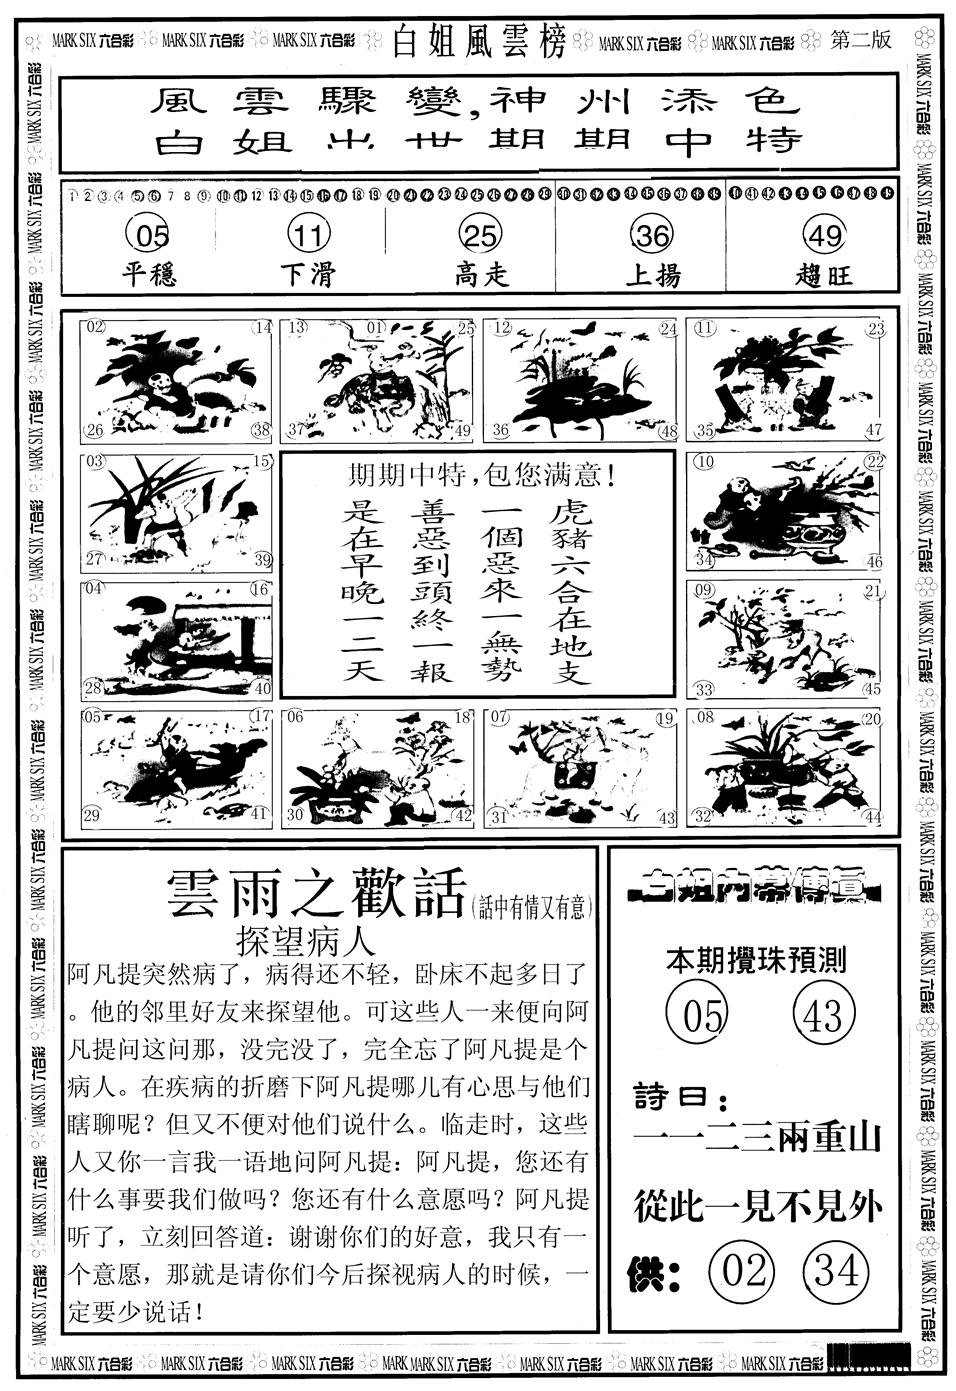 MARK SIX 六合彩 MARK SIX 六合彩 MARK SIX 六合彩 白姐風雲榜 MARK SIX 六合彩 MARK SIX 六合彩 第二版
風雲驟變,神州添色
白姐出世期期中特
1 2 3 4 5 6 7 8 9 10 11 12 13 14 15 16 17 18 19 20 21 22 23 24 25 26 27 28 29 30 31 32 33 34 35 36 37 38 39 40 41 42 43 44 45 46 47 48 49
05 11 25 36 49
平穩 下滑 高走 上揚 趨旺
02 14 13 01 25 12 24 11 23
26 38 37 49 36 48 35 47
03 15 10 22
27 39 34 46
04 16 09 21
28 40 33 45
05 17 06 18 07 19 08 20
29 41 30 42 31 43 32 44
期期中特,包您满意!
虎豬六合在地支
一個惡來一無勢
善惡到頭終一報
是在早晚一二天
雲雨之歡話(話中有情又有意)
探望病人
阿凡提突然病了，病得还不轻，卧床不起多日了
。他的邻里好友来探望他。可这些人一来便向阿
凡提问这问那，没完没了，完全忘了阿凡提是个
病人。在疾病的折磨下阿凡提哪儿有心思与他们
瞎聊呢？但又不便对他们说什么。临走时，这些
人又你一言我一语地问阿凡提：阿凡提，您还有
什么事要我们做吗？您还有什么意愿吗？阿凡提
听了，立刻回答道：谢谢你们的好意，我只有一
个意愿，那就是请你们今后探视病人的时候，一
定要少说话！
白姐内幕傳真
本期攪珠預測
05 43
詩曰：
一一二三兩重山
從此一見不見外
供： 02 34
MARK SIX 六合彩 MARK SIX 六合彩 MARK SIX 六合彩 MARK MARK SIX 六合彩 MARK SIX 六合彩 MARK SIX 六合彩 MARK SIX 六合彩